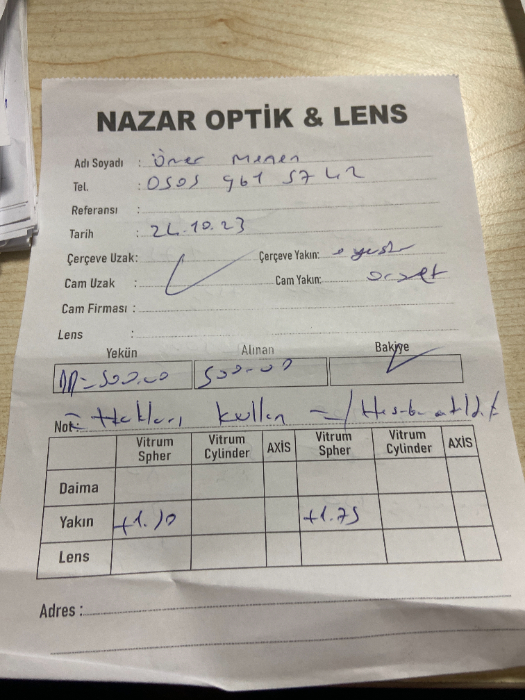 NAZAR OPTİK & LENS
Adı Soyadı : Ömer
Tel. : 0505 961 57 42
Referansı :
Tarih : 24.10.23
Çerçeve Uzak: Çerçeve Yakın:
Cam Uzak : Cam Yakın:
Cam Firması :
Lens :
Yekün Alınan Bakiye
500.00 500.00
Not:
Vitrum Spher Vitrum Cylinder AXİS Vitrum Spher Vitrum Cylinder AXİS
Daima
Yakın +1.75
Lens
Adres :